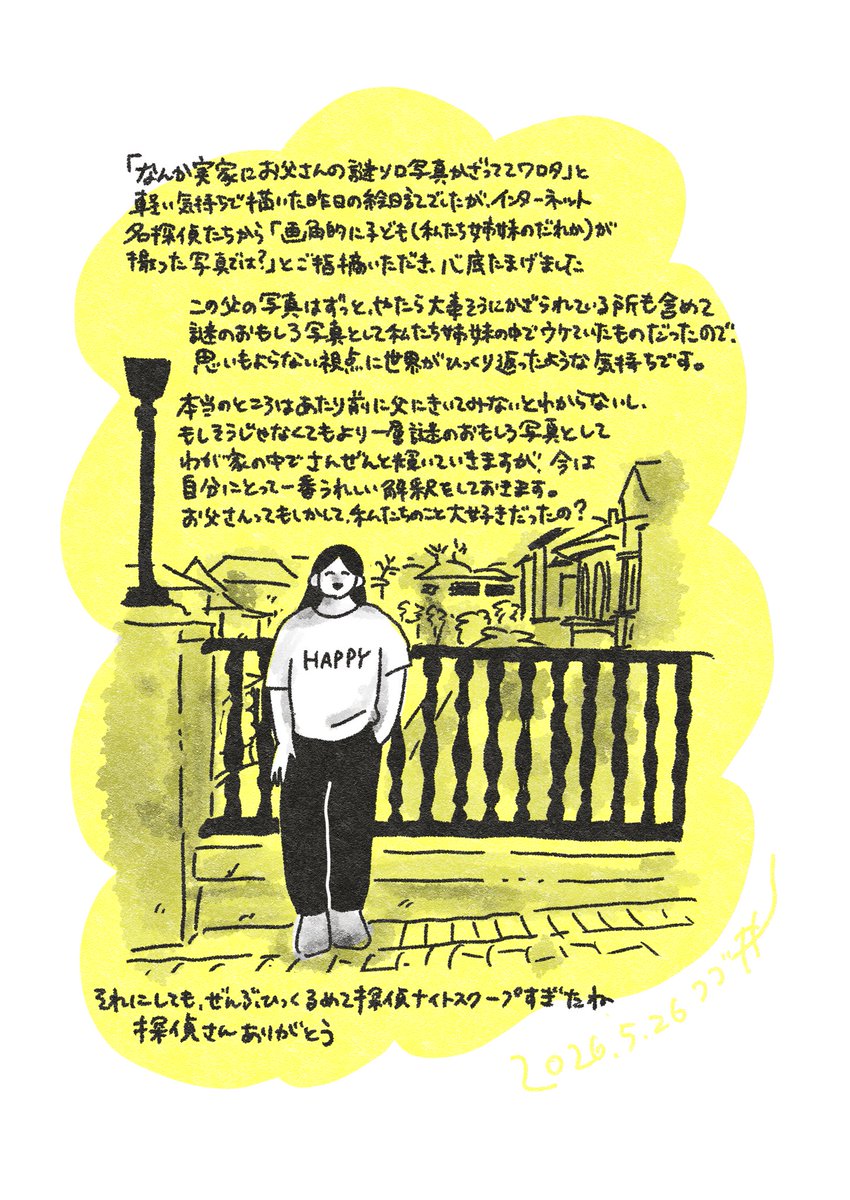 「なんか実家にお父さんの謎ソロ写真かざっててワロタ」と
軽い気持ちで描いた昨日の絵日記でしたが、インターネット
名探偵たちから「画角的に子ども(私たち姉妹のだれか)が
撮った写真では?」とご指摘いただき、心底たまげました
この父の写真はずっと、やたら大事そうにかざられている所も含めて
謎のおもしろ写真として私たち姉妹の中でウケていたものだったので、
思いもよらない視点に世界がひっくり返ったような気持ちです。
本当のところはあたり前に父にきいてみないとわからないし、
もしそうじゃなくてもより一層謎のおもしろ写真として
わが家の中でさんぜんと輝いていきますが、今は
自分にとって一番うれしい解釈をしておきます。
お父さんってもしかして、私たちのこと大好きだったの?
HAPPY
それにしても、ぜんぶひっくるめて探偵ナイトスクープすぎたね
探偵さんありがとう
2026.5.26 つづ井